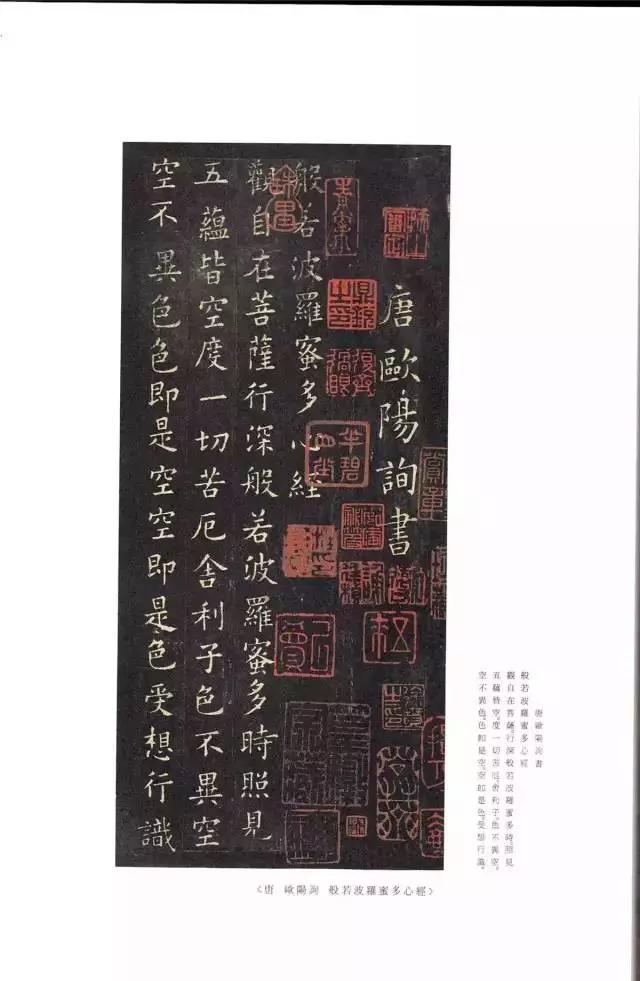 唐歐陽詢書
般若波羅蜜多心經
觀自在菩薩行深般若波羅蜜多時照見
五蘊皆空度一切苦厄舍利子色不異空
空不異色色即是空空即是色受想行識
唐歐陽詢書
般若波羅蜜多心經
觀自在菩薩。行深般若波羅蜜多時。照見
五蘊皆空。度一切苦厄。舍利子。色不異空。
空不異色。色卽是空。空卽是色。受想行識。
〈唐 歐陽詢 般若波羅蜜多心經〉